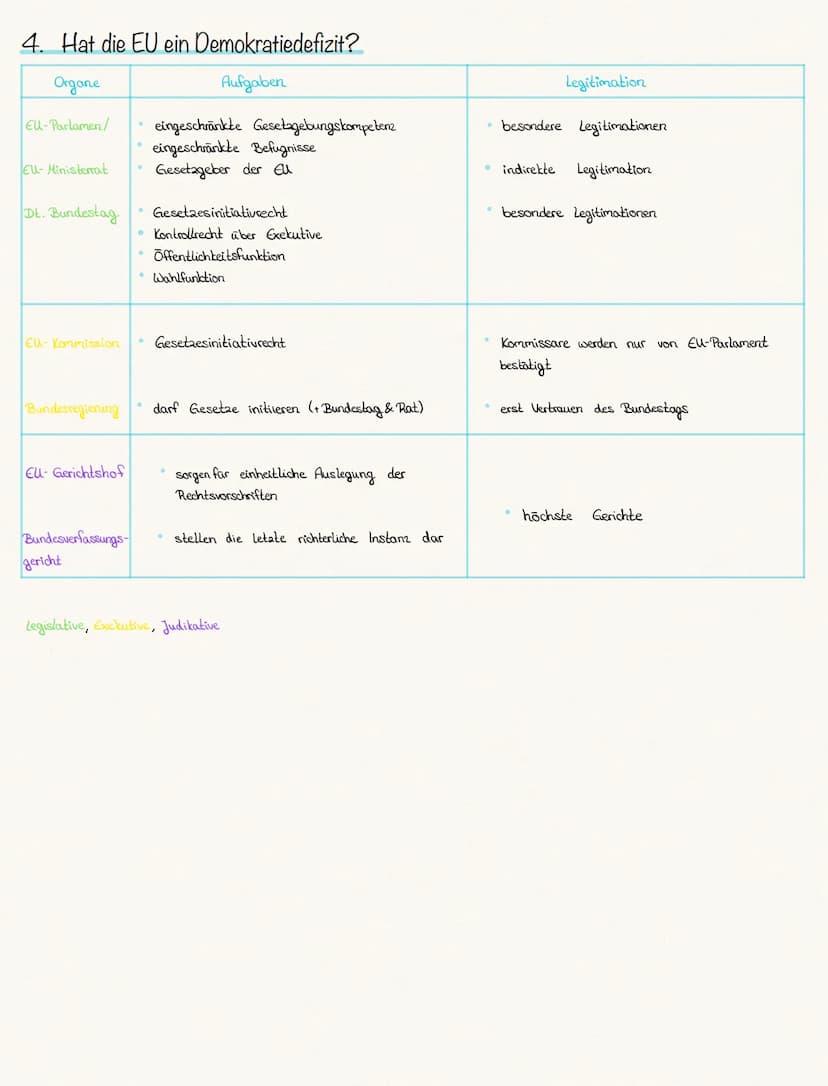 4. Hat die EU ein Demokratiedefizit?
Organe Aufgaben Legitimation
EU-Parlament/ eingeschränkte Gesetzgebungskompetenz besondere Legitimationen
eingeschränkte Befugnisse
EU-Ministerrat Gesetzgeber der EU indirekte Legitimation
Dt. Bundestag Gesetzesinitiativrecht besondere Legitimationen
Kontrollrecht über Exekutive
Öffentlichkeitsfunktion
Wahlfunktion
EU-Kommission Gesetzesinitiativrecht Kommissare werden nur von EU-Parlament
bestätigt
Bundesregierung darf Gesetze initiieren (+ Bundestag & Rat) erst Vertrauen des Bundestags
EU-Gerichtshof sorgen für einheitliche Auslegung der
Rechtsvorschriften
höchste Gerichte
Bundesverfassungs- stellen die letzte richterliche Instanz dar
gericht
Legislative, Exekutive, Judikative